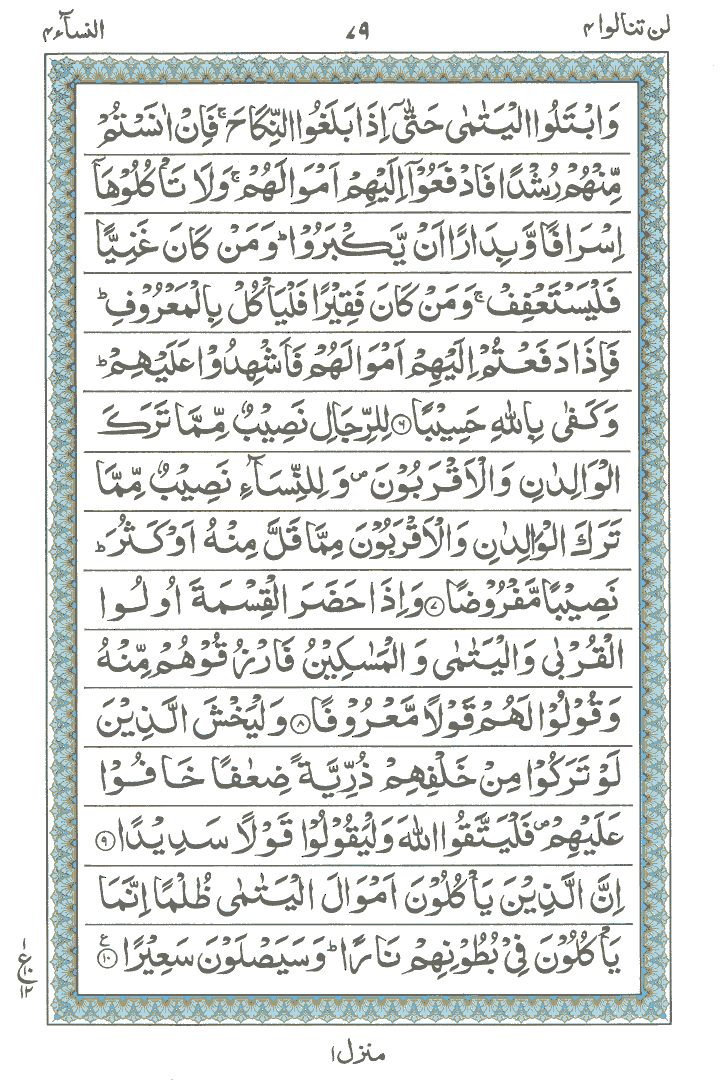 لن تنالوا ۴
۷۹
النسآء ۴
وَابۡتَلُوا الۡيَتٰمٰى حَتّٰٓى اِذَا بَلَغُوا النِّكَاحَ‌ ۚ فَاِنۡ اٰنَسۡتُمۡ
مِّنۡهُمۡ رُشۡدًا فَادۡفَعُوۡۤا اِلَيۡهِمۡ اَمۡوَالَهُمۡ‌ۚ وَلَا تَاۡكُلُوۡهَاۤ
اِسۡرَافًا وَّبِدَارًا اَنۡ يَّكۡبَرُوۡا‌ ؕ وَمَنۡ كَانَ غَنِيًّا
فَلۡيَسۡتَعۡفِفۡ‌ ۚ وَمَنۡ كَانَ فَقِيۡرًا فَلۡيَاۡكُلۡ بِالۡمَعۡرُوۡفِ‌ ؕ
فَاِذَا دَفَعۡتُمۡ اِلَيۡهِمۡ اَمۡوَالَهُمۡ فَاَشۡهِدُوۡا عَلَيۡهِمۡ‌ ؕ
وَكَفٰى بِاللّٰهِ حَسِيۡبًا ‏﴿۶﴾ لِلرِّجَالِ نَصِيۡبٌ مِّمَّا تَرَكَ
الۡوَالِدٰنِ وَالۡاَقۡرَبُوۡنَ ۖ وَلِلنِّسَآءِ نَصِيۡبٌ مِّمَّا
تَرَكَ الۡوَالِدٰنِ وَالۡاَقۡرَبُوۡنَ مِمَّا قَلَّ مِنۡهُ اَوۡ كَثُرَ ‌ؕ
نَصِيۡبًا مَّفۡرُوۡضًا ‏﴿۷﴾ وَاِذَا حَضَرَ الۡقِسۡمَةَ اُولُوا
الۡقُرۡبٰى وَالۡيَتٰمٰى وَالۡمَسٰكِيۡنُ فَارۡزُقُوۡهُمۡ مِّنۡهُ
وَقُوۡلُوۡا لَهُمۡ قَوۡلًا مَّعۡرُوۡفًا ‏﴿۸﴾ وَلۡيَخۡشَ الَّذِيۡنَ
لَوۡ تَرَكُوۡا مِنۡ خَلۡفِهِمۡ ذُرِّيَّةً ضِعٰفًا خَافُوۡا
عَلَيۡهِمۡ ۖ فَلۡيَتَّقُوا اللّٰهَ وَلۡيَقُوۡلُوۡا قَوۡلًا سَدِيۡدًا ‏﴿۹﴾
اِنَّ الَّذِيۡنَ يَاۡكُلُوۡنَ اَمۡوَالَ الۡيَتٰمٰى ظُلۡمًا اِنَّمَا
يَاۡكُلُوۡنَ فِىۡ بُطُوۡنِهِمۡ نَارًا‌ ؕ وَسَيَصۡلَوۡنَ سَعِيۡرًا ‏﴿۱۰﴾ ع
۱
ع
۱۰
۱۲
منزل ۱